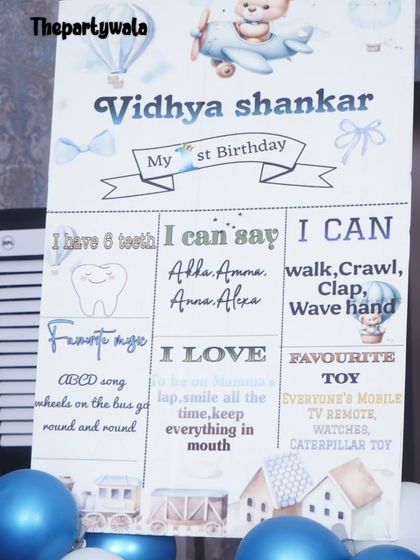 Thepartywala
Vidhya shankar
My 1st Birthday
I have 6 teeth
I can say
Akka,Amma,
Anna,Alexa
I CAN
walk,Crawl,
Clap,
Wave hand
Favourite music
ABCD song
wheels on the bus go
round and round
I LOVE
To be on Mamma's
lap,smile all the
time,keep
everything in
mouth
FAVOURITE
TOY
EVERYONE'S MOBILE
TV REMOTE,
WATCHES,
CATERPILLAR TOY
BPL